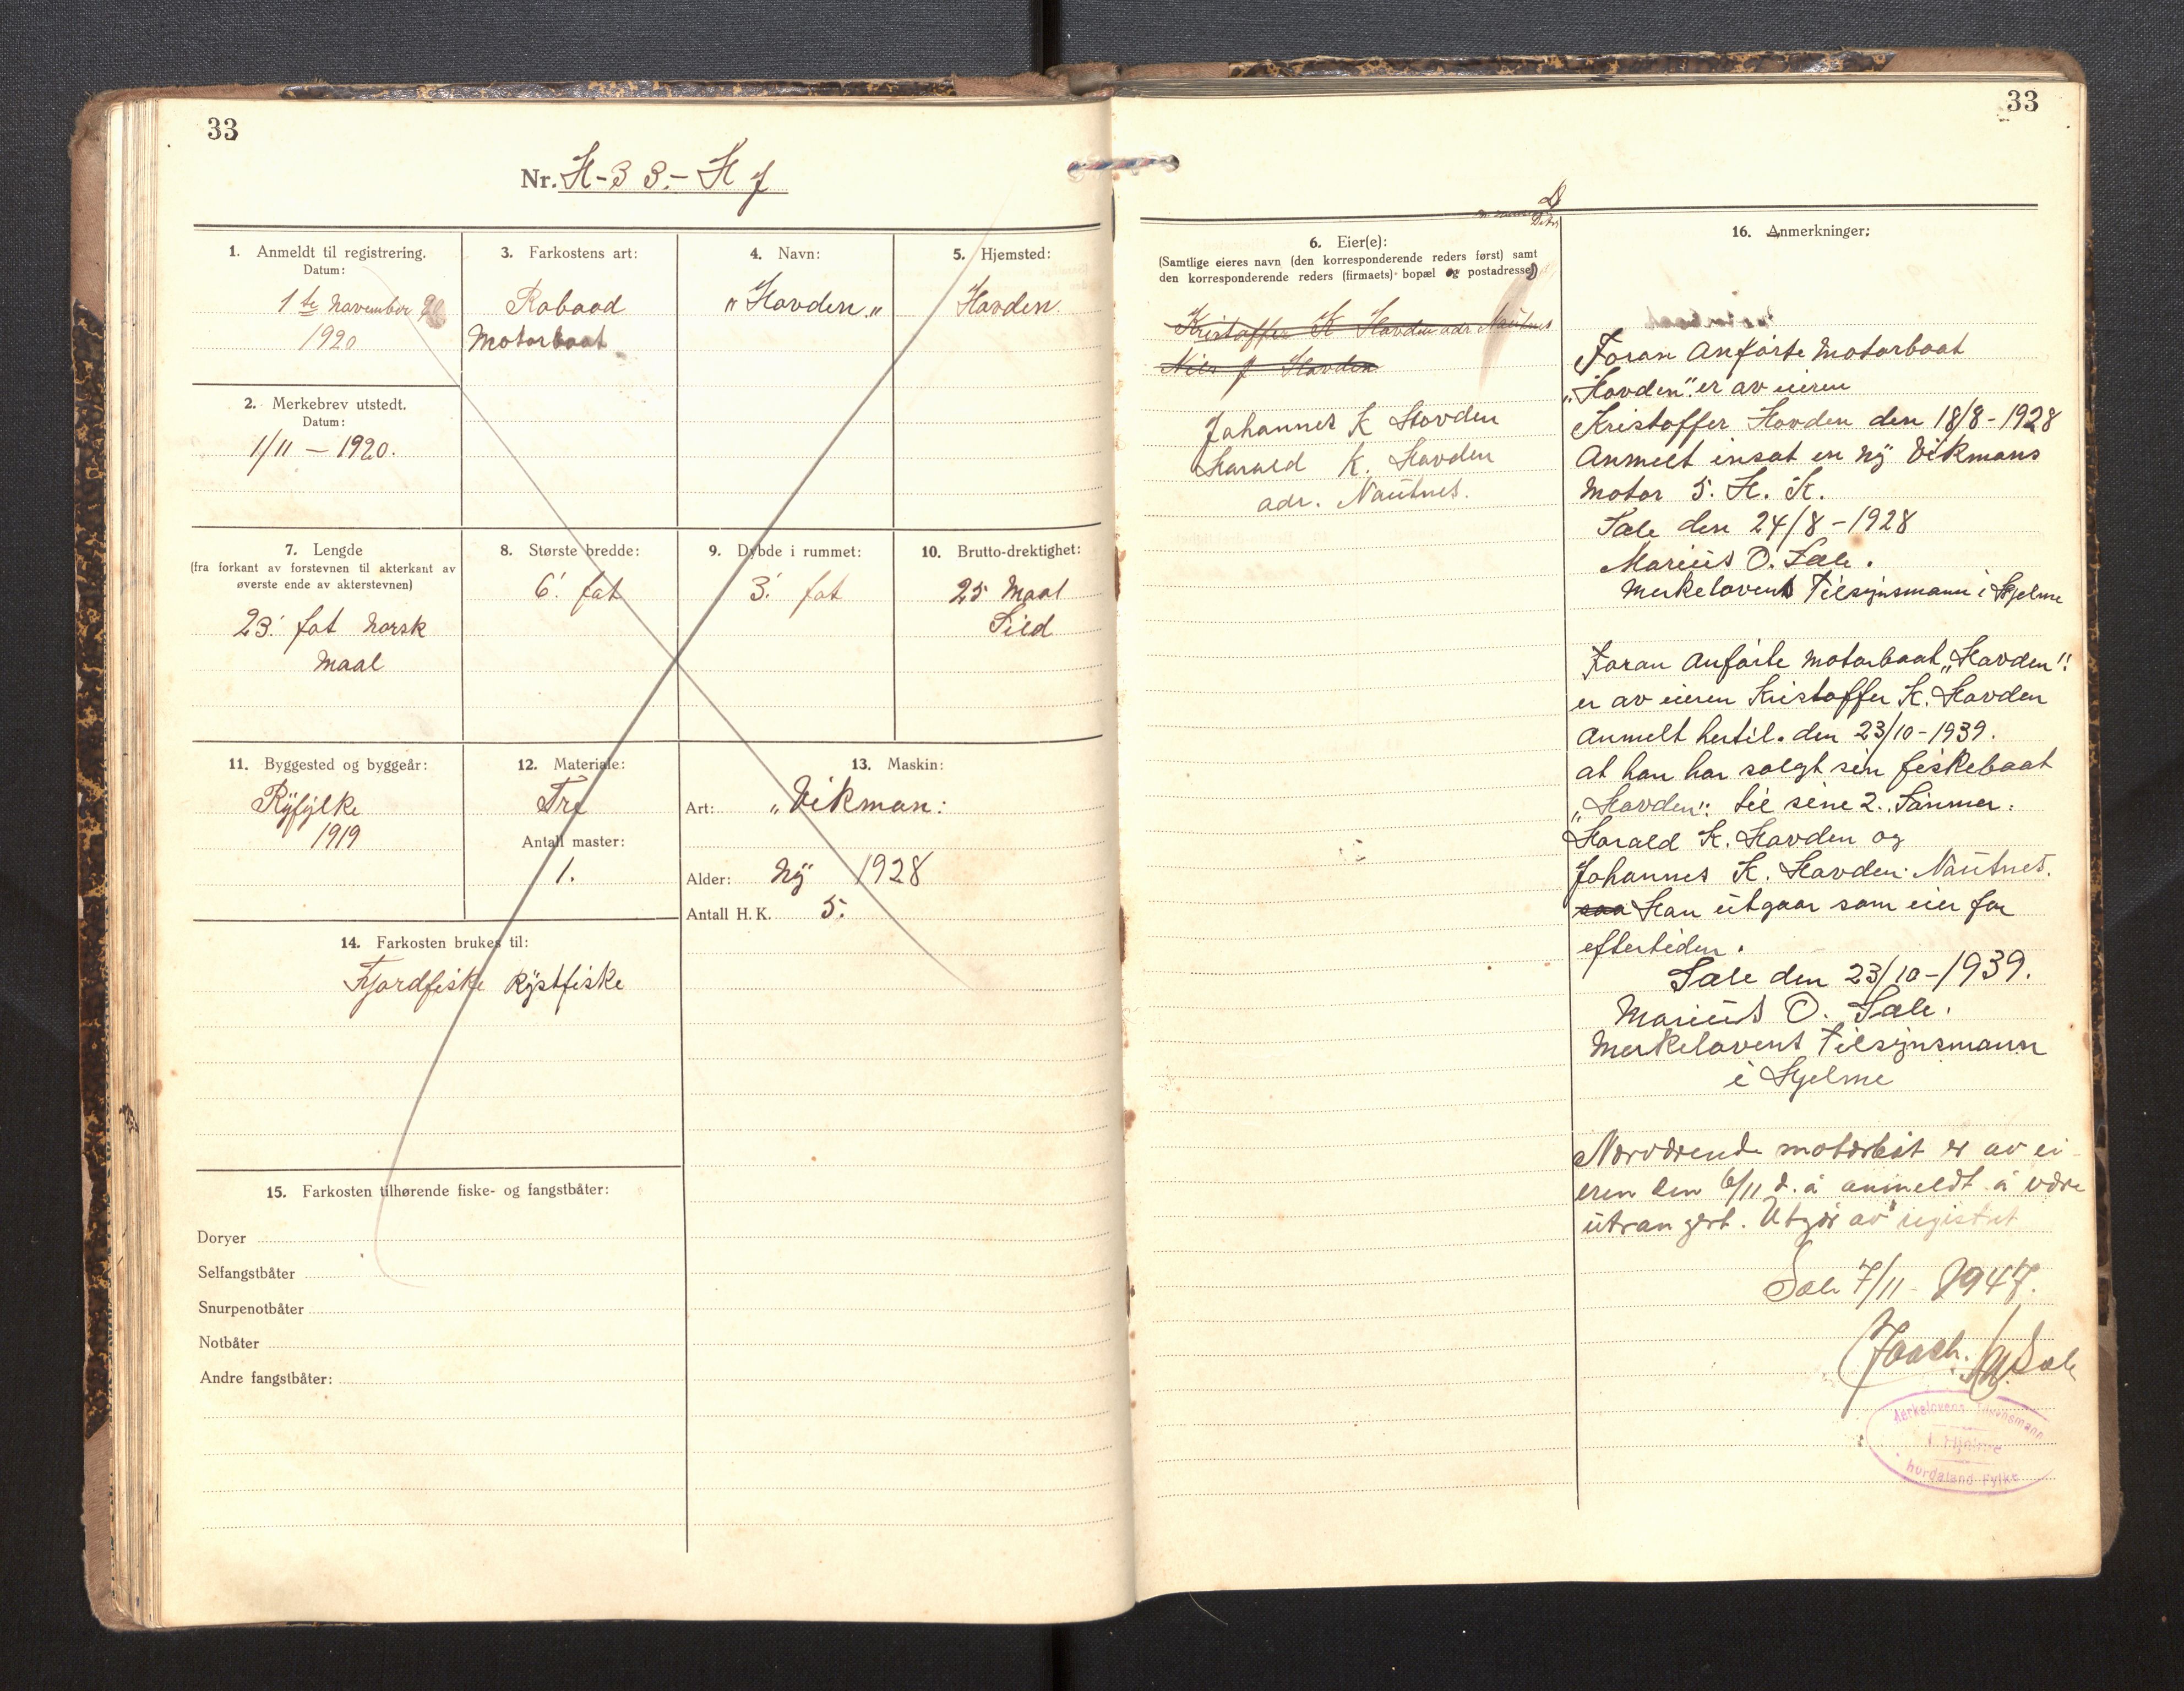 33
Nr. H-33.- Hj
1. Anmeldt til registrering.
Datum:
1te November
1920
2. Merkebrev utstedt.
Datum:
1/11 – 1920.
3. Farkostens art:
Robaad
Motorbaat
4. Navn:
"Hovden"
5. Hjemsted:
Hovden
7. Lengde
(fra forkant av forstevnen til akterkant av
øverste ende av akterstevnen)
23' fot Norsk
Maal
8. Største bredde:
6' fot
9. Dybde i rummet:
3' fot
10. Brutto-drektighet:
25 Maal
Sild
11. Byggested og byggeår:
Ryfylke
1919
12. Materiale:
Tre
Antall master:
1.
13. Maskin:
Art: "Vikman:
Alder: Ny 1928
Antall H. K. 5.
14. Farkosten brukes til:
Fjordfiske Kystfiske
15. Farkosten tilhørende fiske- og fangstbåter:
Doryer
Selfangstbåter
Snurpenotbåter
Notbåter
Andre fangstbåter:
33
6. Eier(e):
(Samtlige eieres navn (den korresponderende reders først) samt
den korresponderende reders (firmaets) bopæl og postadresse)
Kristoffer K Hovden adr. Nautnes
Nils J Hovden
Johannes K Hovden
Harald K. Hovden
adr. Nautnes.
16. Anmerkninger:
Foran Anførte Motorbaat
"Hovden" er av eieren
Kristoffer Hovden den 18/8-1928
Anmelt insat en ny Vikmans
Motor 5. H. K.
Sæle den 24/8-1928
Marius O. Sæle.
Merkelovens Tilsynsmann i Hjelme
Foran Anførte Motorbaat "Hovden"
er av eieren Kristoffer K. Hovden
Anmelt hertil. den 23/10-1939.
at han har solgt sin fiskebaat
"Hovden" til sine 2. Sønner:
Harald K. Hovden og
Johannes K. Hovden. Nautnes.
saa Han utgaar som eier for
eftertiden.
Sæle den 23/10-1939.
Marius O. Sæle.
Merkelovens Tilsynsmann
i Hjelme
Nærværende motorbåt er av ei-
eren den 6/11 d. å anmeldt å være
utrangert. Utgår av registret
Sæle 7/11 - 1947.
Joach. M. Sæle
Merkelovens Tilsynsmann
i Hjelme
hordaland Fylke